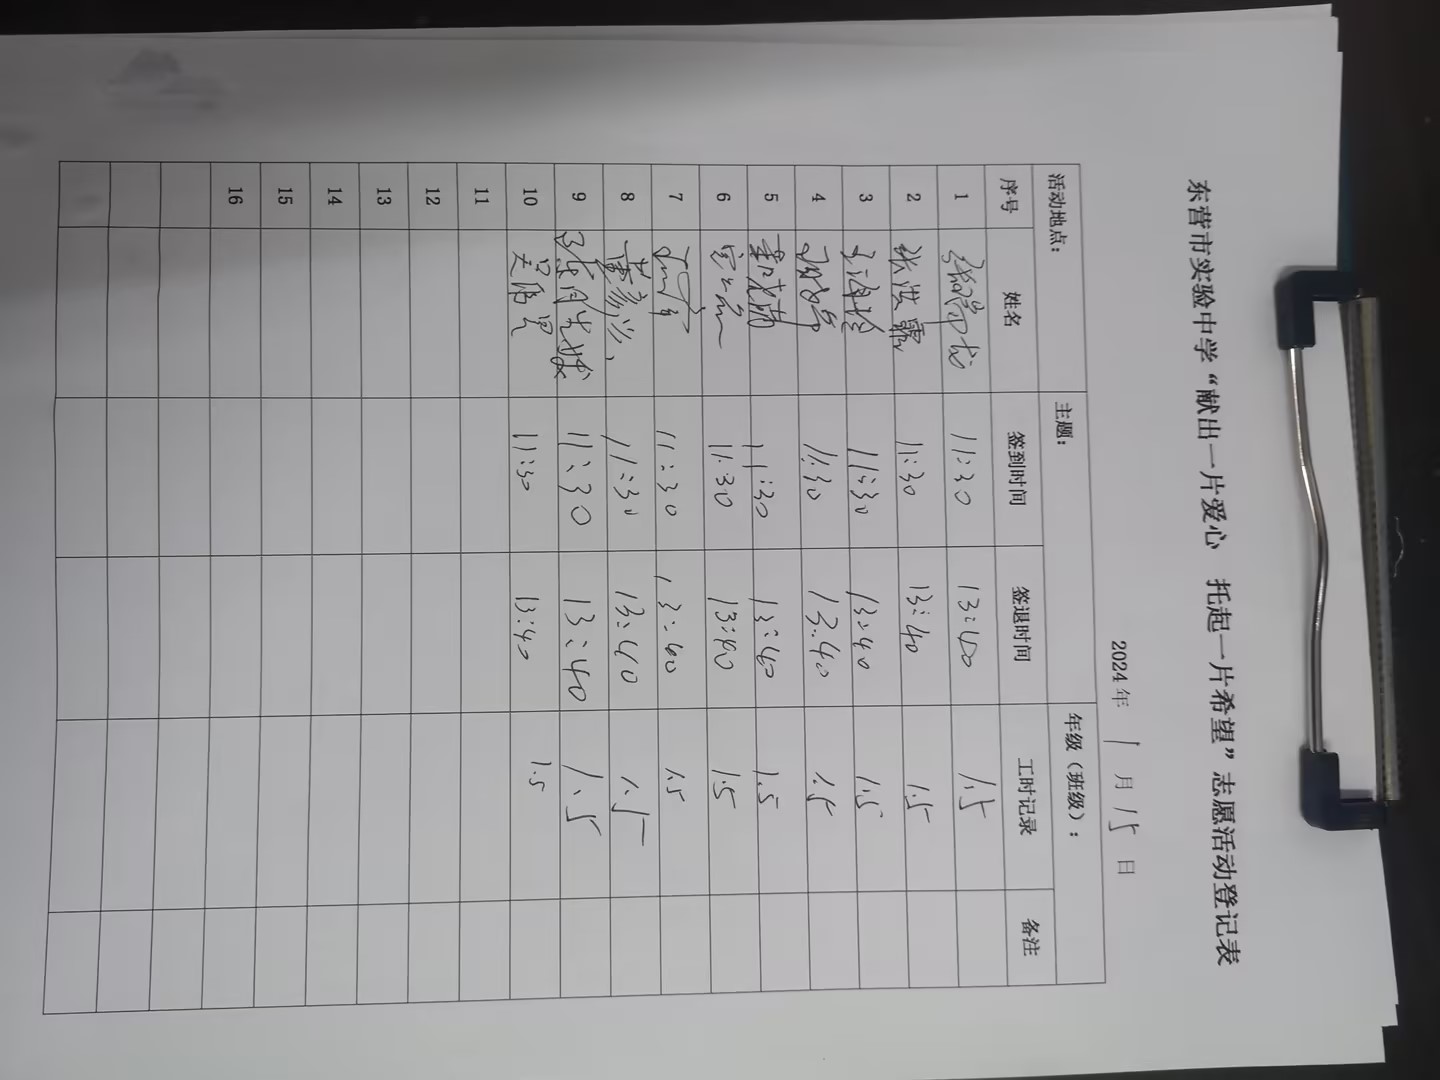 东营市实验中学“献出一片爱心 托起一片希望”志愿活动登记表
2024年 1 月 15 日
活动地点： 主题： 年级（班级）：
序号 姓名 签到时间 签退时间 工时记录 备注
1 11:30 13:40 1.5
2 张洪露 11:30 13:40 1.5
3 11:30 13:40 1.5
4 11:30 13:40 1.5
5 11:30 13:40 1.5
6 11:30 13:40 1.5
7 11:30 13:40 1.5
8 11:30 13:40 1.5
9 11:30 13:40 1.5
10 11:30 13:40 1.5
11
12
13
14
15
16